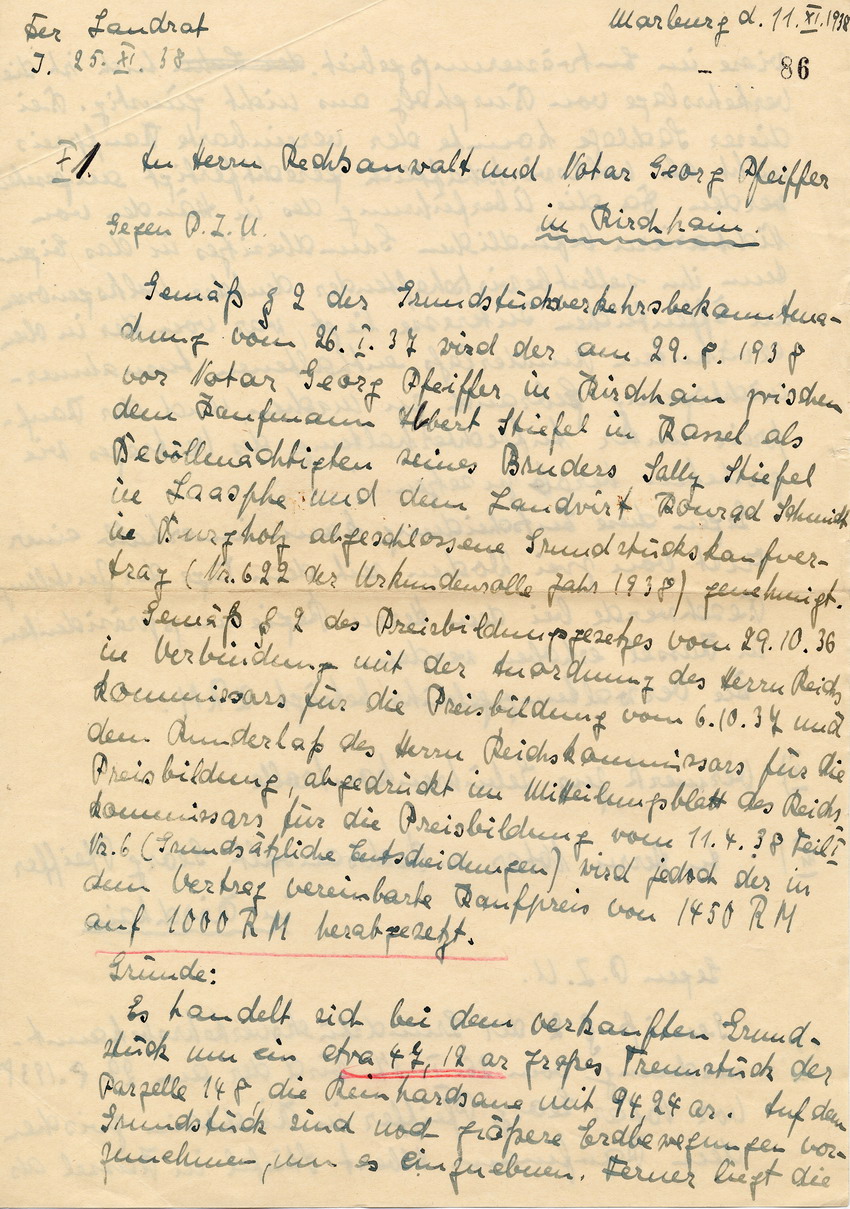 Der Landrat
Marburg d. 11. XI. 1938
J. 25. XI. 38
- 86
I 1. An Herrn Rechtsanwalt und Notar Georg Pfeiffer
in Kirchhain.
Gegen P.Z.U.
Gemäß § 2 der Grundstücksverkehrsbekanntma-
chung vom 26. I. 37 wird der am 29. 8. 1938
vor Notar Georg Pfeiffer in Kirchhain zwischen
dem Kaufmann Albert Stiefel in Kassel als
Bevollmächtigten seines Bruders Sally Stiefel
in Laasphe und dem Landwirt Konrad Schmidt
in Burgholz abgeschlossene Grundstückskaufver-
trag (Nr. 622 der Urkundenrolle Jahr 1938) genehmigt.
Gemäß § 2 des Preisbildungsgesetzes vom 29.10.36
in Verbindung mit der Anordnung des Herrn Reichs
kommissars für die Preisbildung vom 6.10.37 und
dem Runderlaß des Herrn Reichskommissars für die
Preisbildung, abgedruckt im Mitteilungsblatt des Reichs
kommissars für die Preisbildung vom 11.4.38 Teil I
Nr. 6 (Grundsätzliche Entscheidungen) wird jedoch der in
dem Vertrag vereinbarte Kaufpreis von 1450 RM
auf 1000 RM herabgesetzt.
Gründe:
Es handelt sich bei dem verkauften Grund-
stück um ein etwa 47,12 ar großes Trennstück der
Parzelle 148, die Reinhardsaue mit 94,24 ar. Auf dem
Grundstück sind noch größere Erdbewegungen vor-
zunehmen, um es einzuebenen. Ferner liegt die